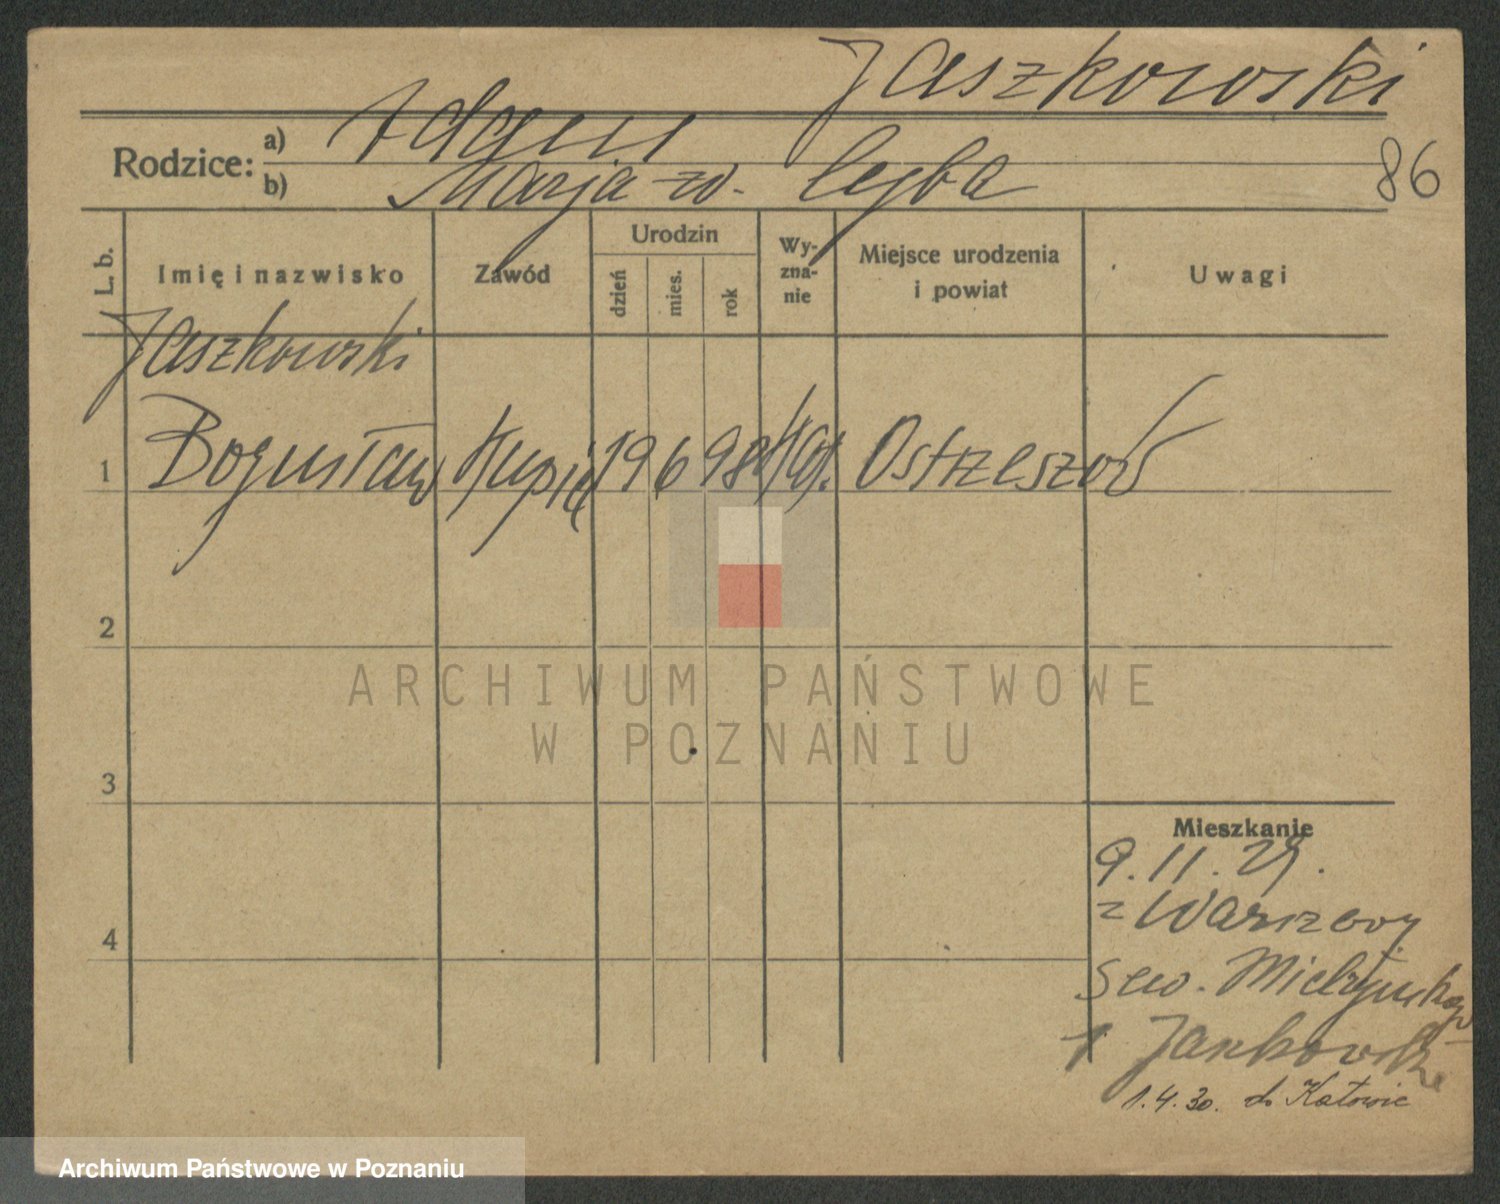 Jaszkowski
Rodzice: a) Adam
b) Marja zd. Cegba
86
L. b. Imię i nazwisko Zawód Urodzin dzień mies. rok Wyznanie Miejsce urodzenia i powiat Uwagi
Jaszkowski
1 Bogusław Kupiec 19 6 98 Kat. Ostrzeszów
2
ARCHIWUM PAŃSTWOWE
W POZNANIU
3
Mieszkanie
9.11.29.
z Warszawy
4
Sew. Mielżyńskiego
1 Jankowski
1.4.30. do Katowic
Archiwum Państwowe w Poznaniu